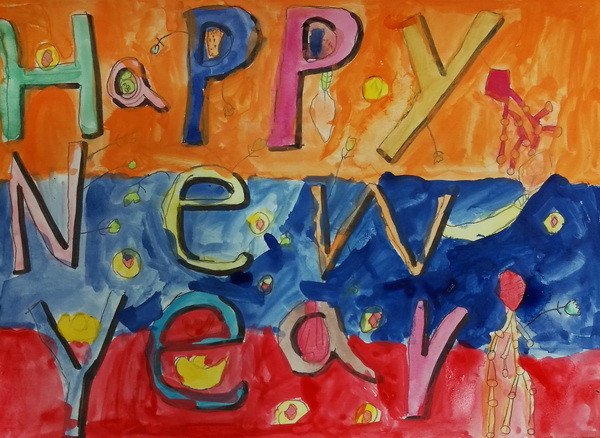 HaPPY
New
Year